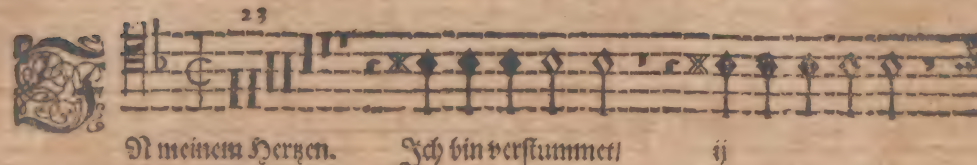 23
IN meinem Hertzen. Ich bin verstummet/ ij